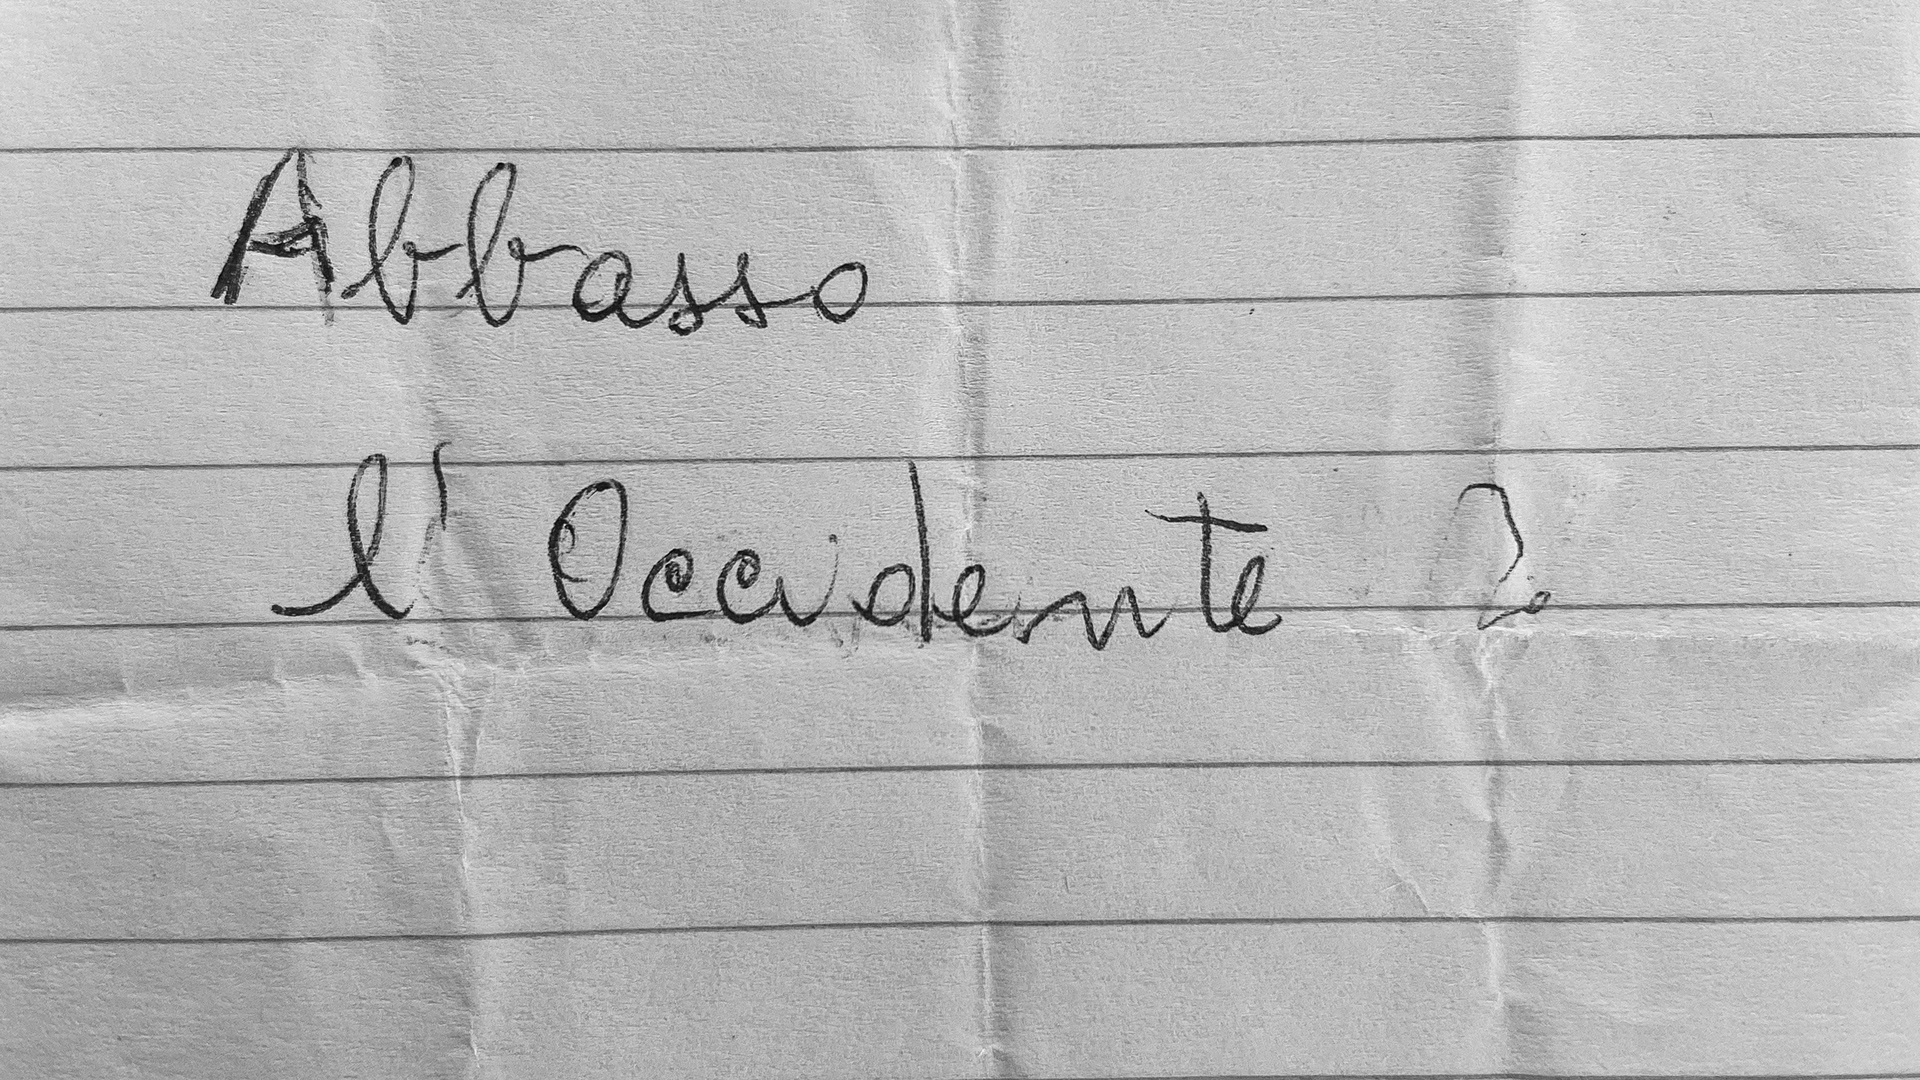 Abbasso
l'Occidente ?